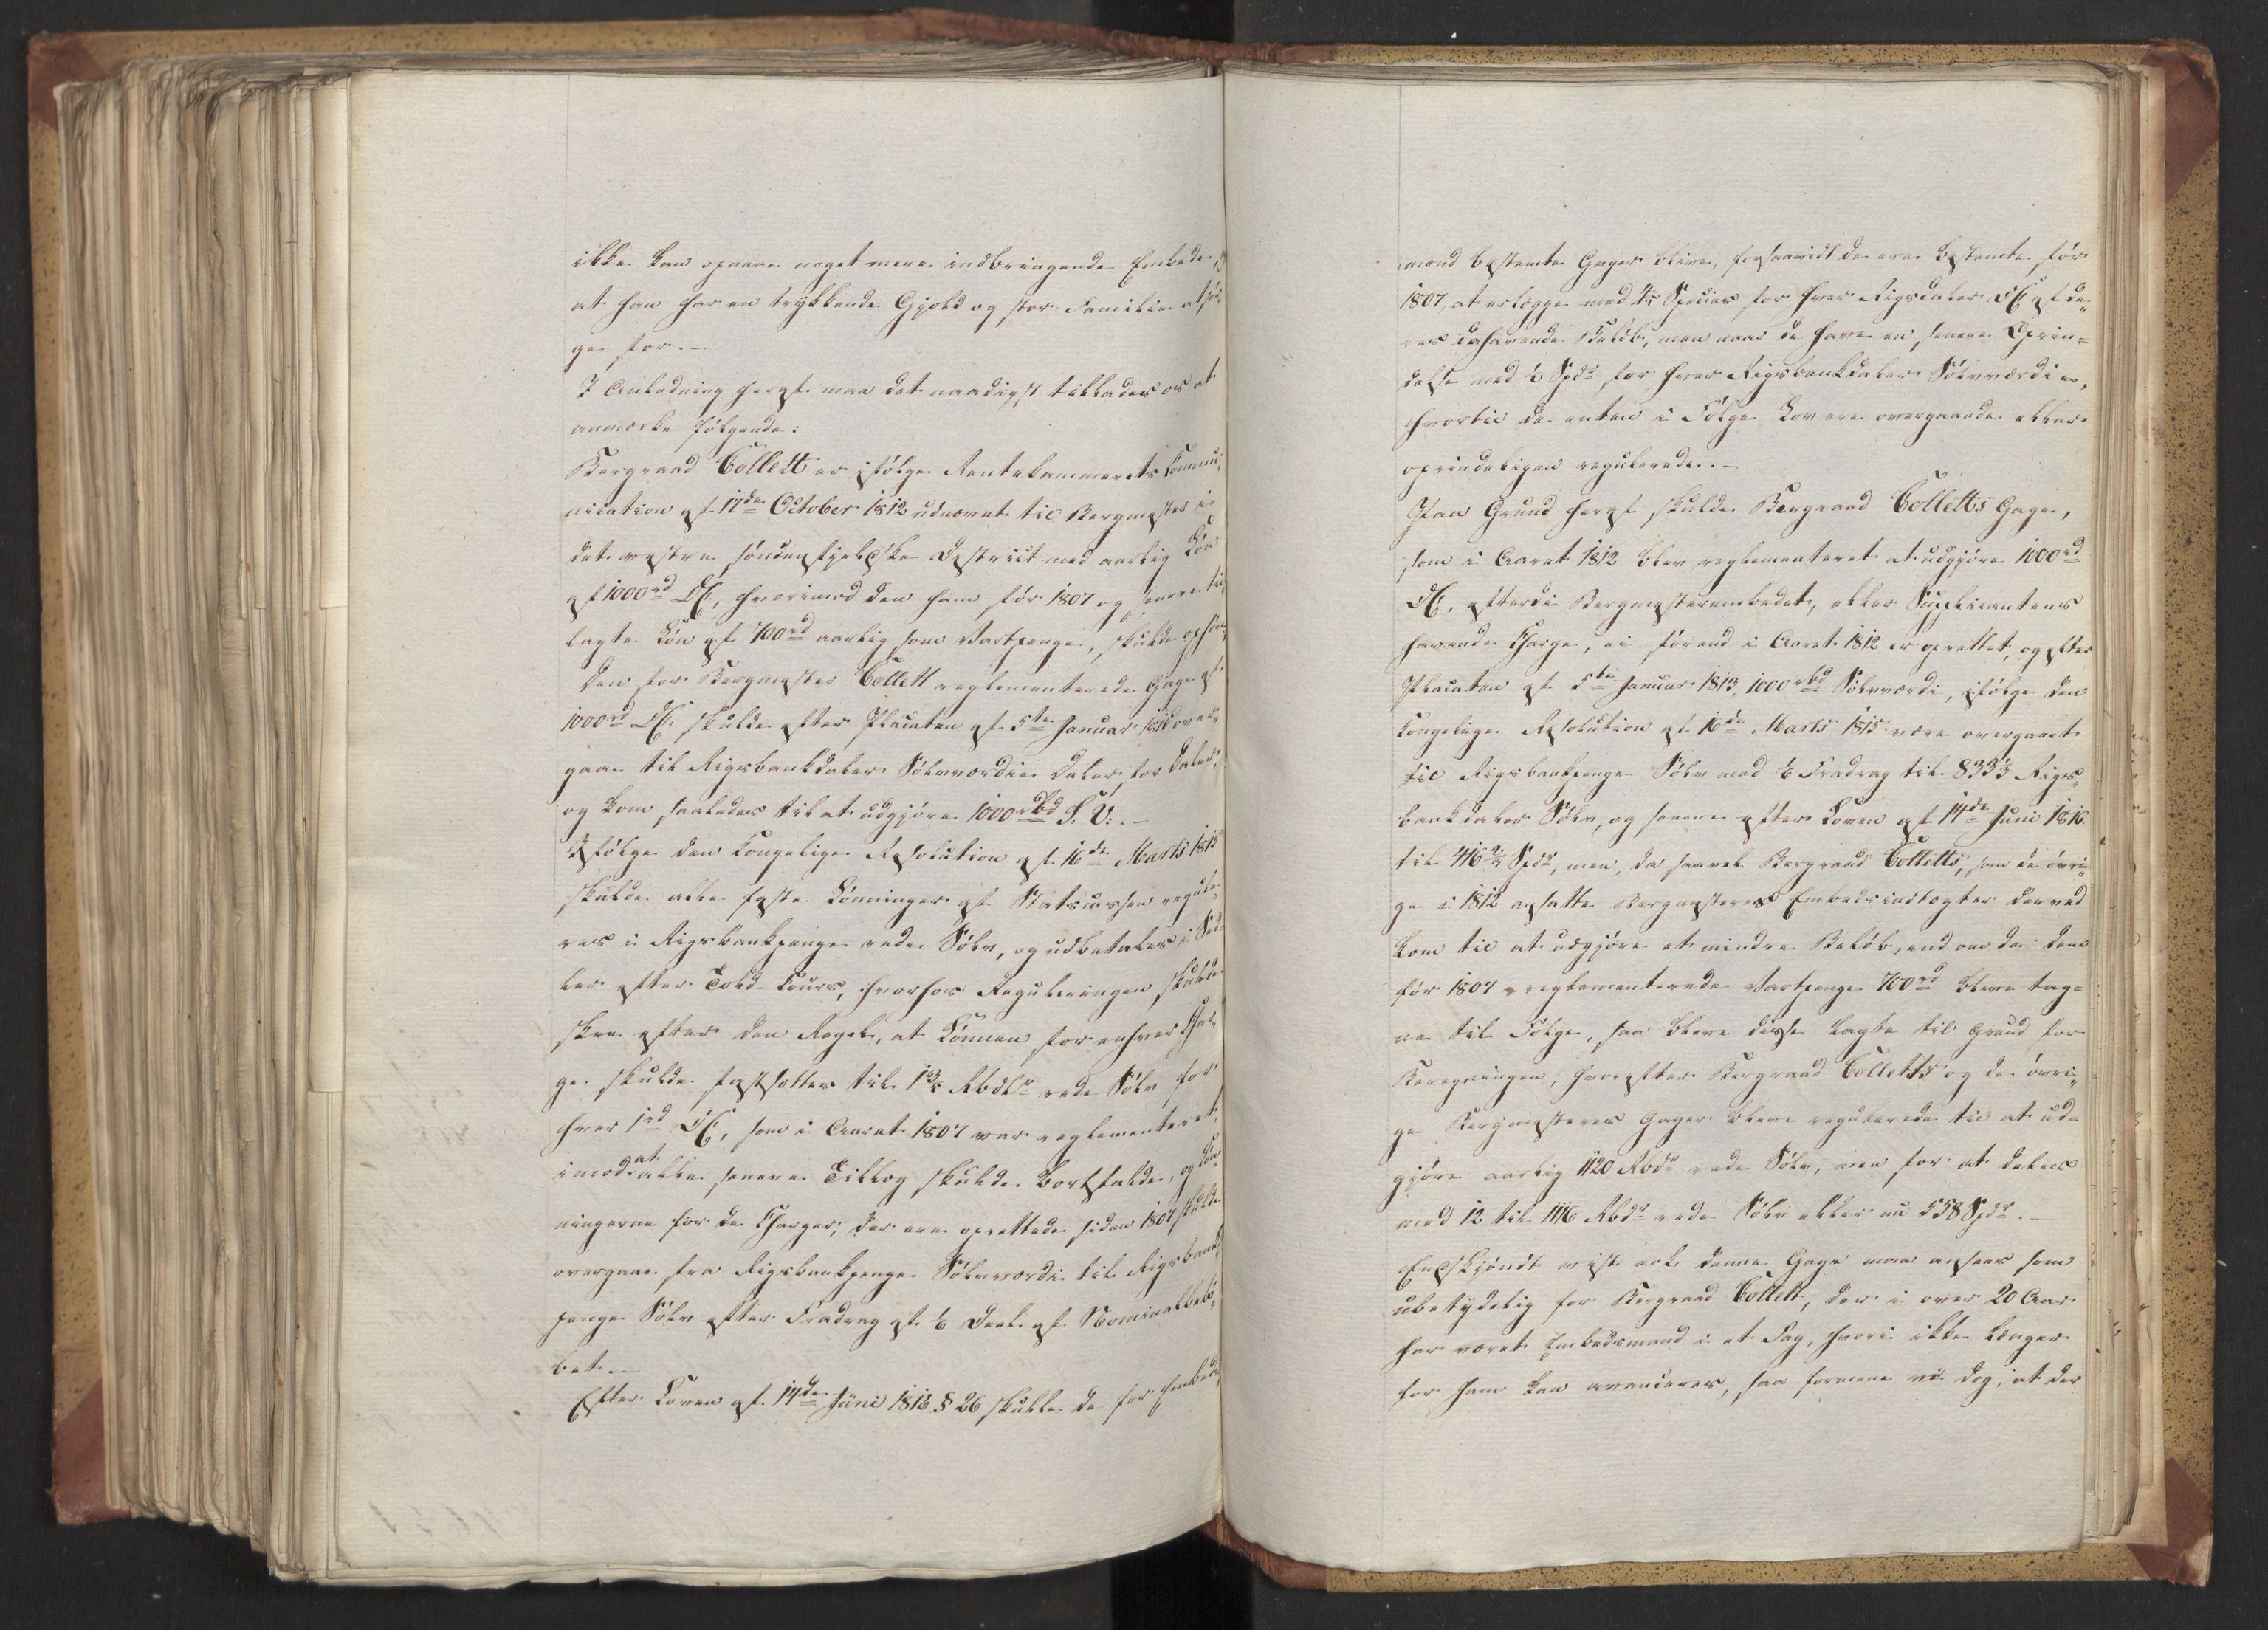 ikke kan opnaae noget mere indbringende Embede,
at han har en trykkende Gjæld og stor Familie at sör-
ge for. —
I Anledning heraf maa det naadigst tillades os at
anmærke følgende:
Bergraad Collett er ifölge Rentekammerets Commu-
nication af 17de October 1812 udnævnt til Bergmester i
det vestre söndenfjelske District med aarlig Lön
af 1000rd DC, hvorimod den ham för 1807 og senere til-
lagte Lön af 700rd aarlig som Vartpenge, skulde ophöre,
den for Bergmester Collett reglementerede Gage af
1000rd DC: skulde efter Placaten af 5te Januar 1813 over-
gaae til Rigsbankdaler Sölvværdie Daler for Daler,
og kom saaledes til at udgjöre 1000rbd S: V: —
Ifölge den Kongelige Resolution af 16de Marts 1815
skulde alle faste Lönninger af Statscassen regule-
res i Rigsbankpenge rede Sölv, og udbetales i Sed-
ler efter Told-Cours, hvorhos Reguleringen skulde
skee efter den Regel, at Lönnen for enhver Char-
ge skulde fastsættes til 1 3/5 Rbdlr rede Sölv for
hver 1rd DC, som i Aaret 1807 var reglementeret,
imod at alle senere Tillæg skulde bortfalde, og Lön-
ningerne for de Charger, der ere oprettede siden 1807 skulde
overgaae fra Rigsbankpenge Sölvværdi til Rigsbank-
penge Sölv efter Fradrag af 1/6 Deel af Nominalbelö-
bet. —
Efter Loven af 14de Juni 1816 § 26 skulle de for Embeds-
mænd bestemte Gager blive, forsaavidt de ere bestemte för
1807, at erlægge med 4/5 Species for hver Rigsdaler DC af de-
res dahavende Belöb, men naar de have en senere Oprin-
delse med ½ Spdr for hver Rigsbankdaler Sölvværdi er,
hvortil de enten i Fölge Lov ere overgaaede eller
oprindeligen regulerede. —
Paa Grund heraf skulde Bergraad Colletts Gage,
som i Aaret 1812 blev reglementeret at udgjöre 1000rd
DC, efterdi Bergmesterembedet, eller Supplicantens
havende Charge, ei förend i Aaret 1812 er oprettet, og efter
Placaten af 5te Januar 1813, 1000rbd Sölvværdi, ifölge den
Kongelige Resolution af 16de Marts 1815 være overgaaet
til Rigsbankpenge Sölv med 1/6 Fradrag til 833⅓ Rigs-
bankdaler Sölv, og senere efter Loven af 14de Juni 1816
til 416⅔ Spdr, men, da saavel Bergraad Colletts, som de övri-
ge i 1812 ansatte Bergmesteres Embedsindtægter derved
kom til at udgjöre et mindre Belöb, end om de dem
för 1807 reglementerede Vartpenge 700rd bleve tag-
ne til Fölge, saa bleve disse lagte til Grund for
Beregningen, hvorefter Bergraad Colletts og de övri-
ge Bergmesteres Gager bleve regulerede til at ud-
gjöre aarlig 1120 Rbdr rede Sölv, men for at deles
med 12 til 1116 Rbdr rede Sölv eller nu 558 Spdr. —
Endskjöndt vist nok denne Gage maa ansees som
ubetydelig for Bergraad Collett, der i over 20 Aar
har været Embedsmand i et Fag, hvori ikke længer
for ham kan avanceres, saa formene vi dog, at der